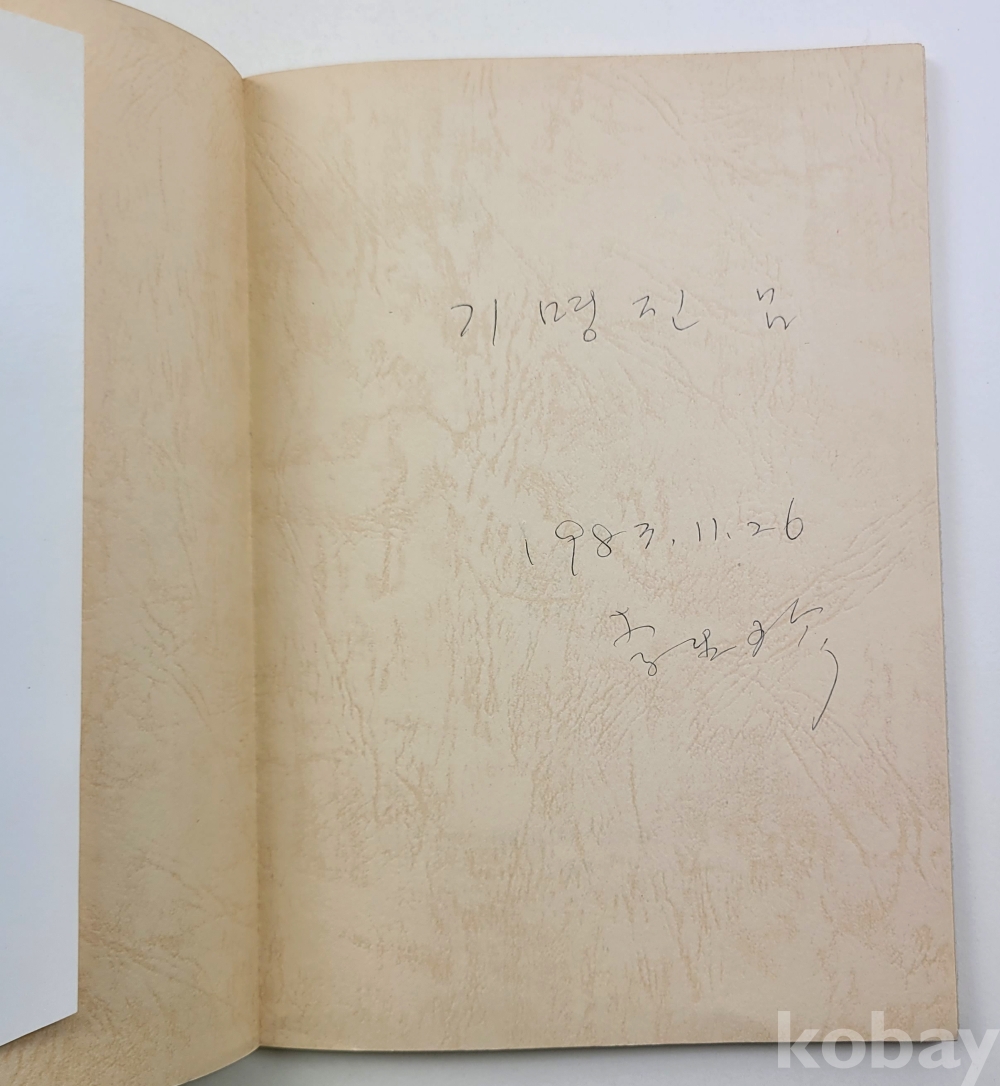 기명진 님
1983. 11. 26
kobay